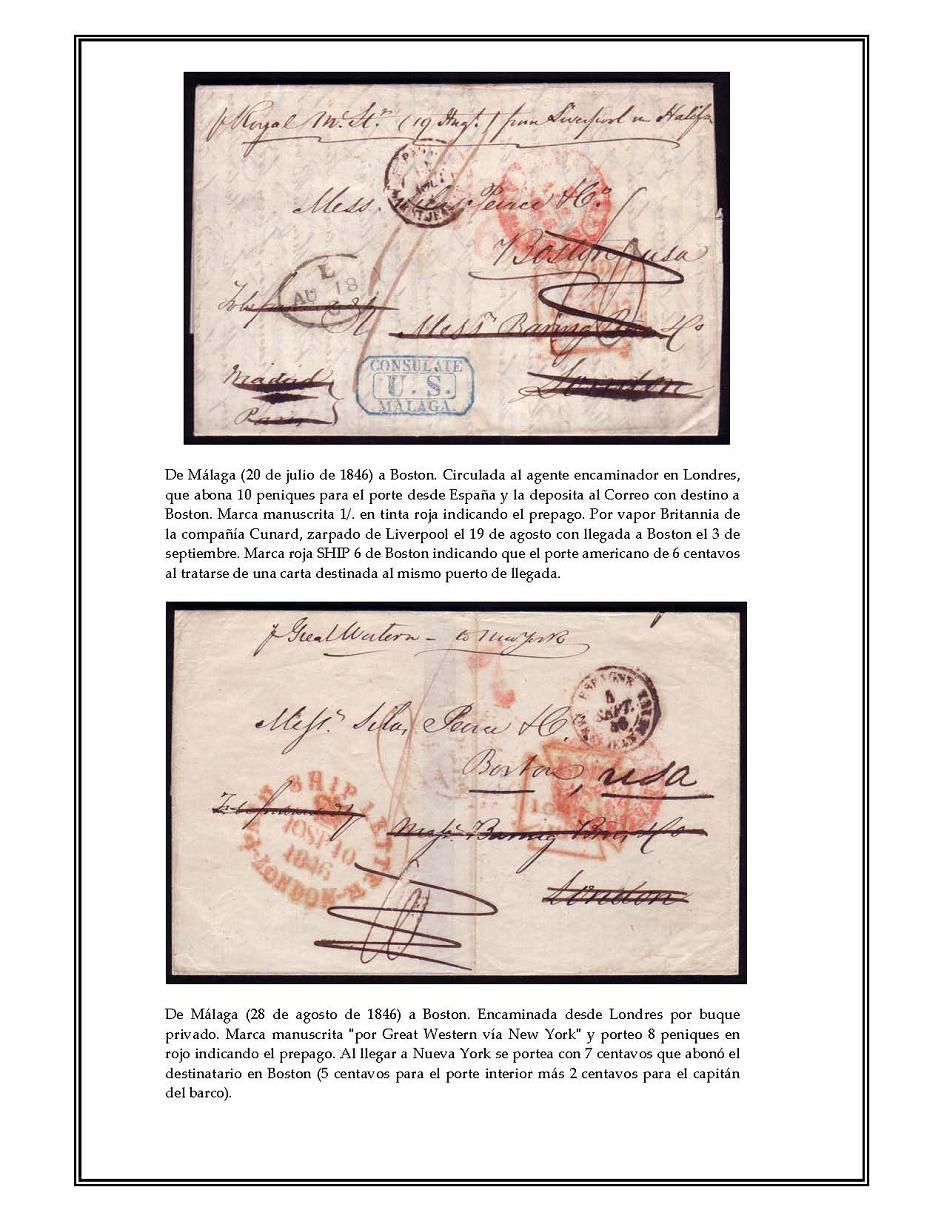 p Royal M. St.r (19 Augt.) from Liverpool via Halifax
ESPAGNE
AOUT
ST JEAN
Mess. Silas Peirce & Co.
Boston usa
L
AU 18
Messrs Baring Bros & Co
London
Madrid
Paris
CONSULATE
U. S.
MALAGA.
De Málaga (20 de julio de 1846) a Boston. Circulada al agente encaminador en Londres,
que abona 10 peniques para el porte desde España y la deposita al Correo con destino a
Boston. Marca manuscrita 1/. en tinta roja indicando el prepago. Por vapor Britannia de
la compañía Cunard, zarpado de Liverpool el 19 de agosto con llegada a Boston el 3 de
septiembre. Marca roja SHIP 6 de Boston indicando que el porte americano de 6 centavos
al tratarse de una carta destinada al mismo puerto de llegada.
p Great Western – to New York
ESPAGNE
5
SEPT.
46
ST JEAN
Messrs. Silas Peirce & Co.
Boston, usa
SHIP LETTER
10 SE 10
1846
LONDON
Messrs. Baring Bros, & Co
London
De Málaga (28 de agosto de 1846) a Boston. Encaminada desde Londres por buque
privado. Marca manuscrita "por Great Western vía New York" y porteo 8 peniques en
rojo indicando el prepago. Al llegar a Nueva York se portea con 7 centavos que abonó el
destinatario en Boston (5 centavos para el porte interior más 2 centavos para el capitán
del barco).